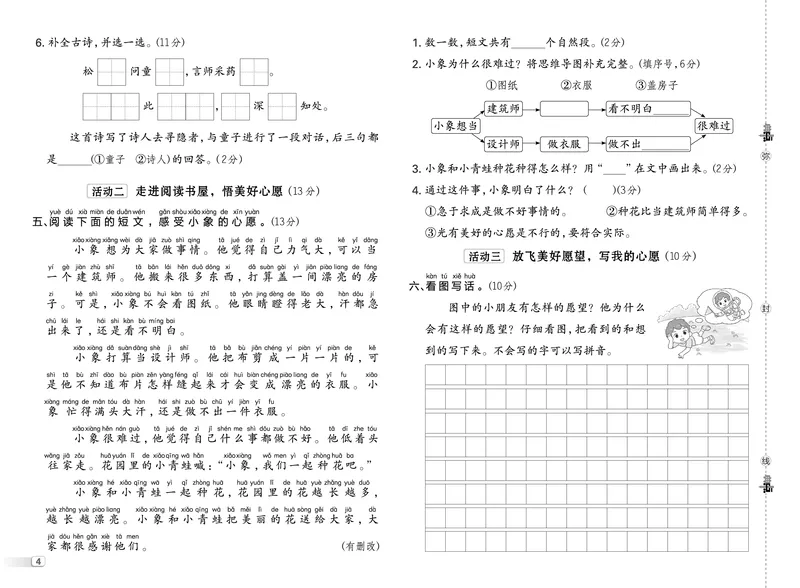 6. 补全古诗，并选一选。(11分)
松 问童 ，言师采药 。
此 ， 深 知处。
这首诗写了诗人去寻隐者，与童子进行了一段对话，后三句都
是______(①童子 ②诗人)的回答。(2分)
活动二 走进阅读书屋，悟美好心愿(13分)
yuè dú xià miàn de duǎn wén gǎn shòu xiǎo xiàng de xīn yuàn
五、阅读下面的短文，感受小象的心愿。(13分)
xiǎo xiàng xiǎng wèi dà jiā zuò shì qing tā jué de zì jǐ lì qi dà kě yǐ dāng
小象想为大家做事情。他觉得自己力气大，可以当
yí gè jiàn zhù shī tā bān lái hěn duō dōng xi dǎ suàn gài yì jiān piào liang de fáng
一个建筑师。他搬来很多东西，打算盖一间漂亮的房
zi kě shì xiǎo xiàng bú huì kàn tú zhǐ tā yǎn jing dèng de lǎo dà hàn dōu jí
子。可是，小象不会看图纸。他眼睛瞪得老大，汗都急
chū lái le hái shi kàn bù míng bai
出来了，还是看不明白。
xiǎo xiàng dǎ suàn dāng shè jì shī tā bǎ bù jiǎn chéng yí piàn yí piàn de kě
小象打算当设计师。他把布剪成一片一片的，可
shì tā bù zhī dào bù piàn zěn yàng féng qǐ lái cái huì biàn chéng piào liang de yī fu xiǎo
是他不知道布片怎样缝起来才会变成漂亮的衣服。小
xiàng máng de mǎn tóu dà hàn hái shi zuò bù chū yí jiàn yī fu
象忙得满头大汗，还是做不出一件衣服。
xiǎo xiàng hěn nán guò tā jué de zì jǐ shén me shì dōu zuò bù hǎo tā dī zhe tóu
小象很难过，他觉得自己什么事都做不好。他低着头
wǎng jiā zǒu huā yuán lǐ de xiǎo qīng wā hǎn xiǎo xiàng wǒ men yì qǐ zhòng huā ba
往家走。花园里的小青蛙喊：“小象，我们一起种花吧。”
xiǎo xiàng hé xiǎo qīng wā yì qǐ zhòng huā huā yuán lǐ de huā yuè zhǎng yuè duō
小象和小青蛙一起种花，花园里的花越长越多，
yuè zhǎng yuè piào liang xiǎo xiàng hé xiǎo qīng wā bǎ měi lì de huā sòng gěi dà jiā dà
越长越漂亮。小象和小青蛙把美丽的花送给大家，大
jiā dōu hěn gǎn xiè tā men
家都很感谢他们。 (有删改)
4
1. 数一数，短文共有______个自然段。(2分)
2. 小象为什么很难过？将思维导图补充完整。(填序号，6分)
①图纸 ②衣服 ③盖房子
建筑师 看不明白______
小象想当 很难过
设计师 做衣服 做不出______
3. 小象和小青蛙种花种得怎么样？用“____”在文中画出来。(2分)
4. 通过这件事，小象明白了什么？( )(3分)
①急于求成是做不好事情的。 ②种花比当建筑师简单得多。
③光有美好的心愿是不行的，要符合实际。
活动三 放飞美好愿望，写我的心愿(10分)
kàn tú xiě huà
六、看图写话。(10分)
图中的小朋友有怎样的愿望？他为什么
会有这样的愿望？仔细看图，把看到的和想
到的写下来。不会写的字可以写拼音。
弥
封
线